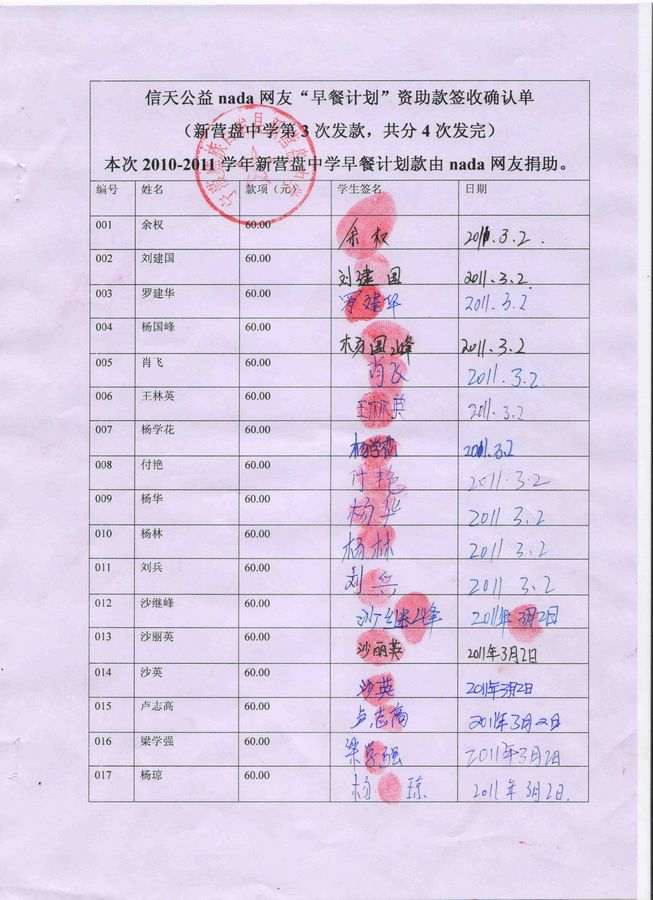 信天公益nada网友“早餐计划”资助款签收确认单
（新营盘中学第3次发款，共分4次发完）
本次2010-2011学年新营盘中学早餐计划款由nada网友捐助。
编号 姓名 款项（元） 学生签名 日期
001 余权 60.00 余权 2011.3.2.
002 刘建国 60.00 刘建国 2011.3.2.
003 罗建华 60.00 罗建华 2011.3.2
004 杨国峰 60.00 杨国峰 2011.3.2
005 肖飞 60.00 肖飞 2011.3.2.
006 王林英 60.00 王林英 2011.3.2
007 杨学花 60.00 杨学花 2011.3.2
008 付艳 60.00 付艳 2011.3.2
009 杨华 60.00 杨华 2011 3.2
010 杨林 60.00 杨林 2011 3.2
011 刘兵 60.00 刘兵 2011 3.2
012 沙继峰 60.00 沙继峰 2011年3月2日
013 沙丽英 60.00 沙丽英 2011年3月2日
014 沙英 60.00 沙英 2011年3月2日
015 卢志高 60.00 卢志高 2011年3月2日
016 梁学强 60.00 梁学强 2011年3月2日
017 杨琼 60.00 杨琼 2011年3月2日.